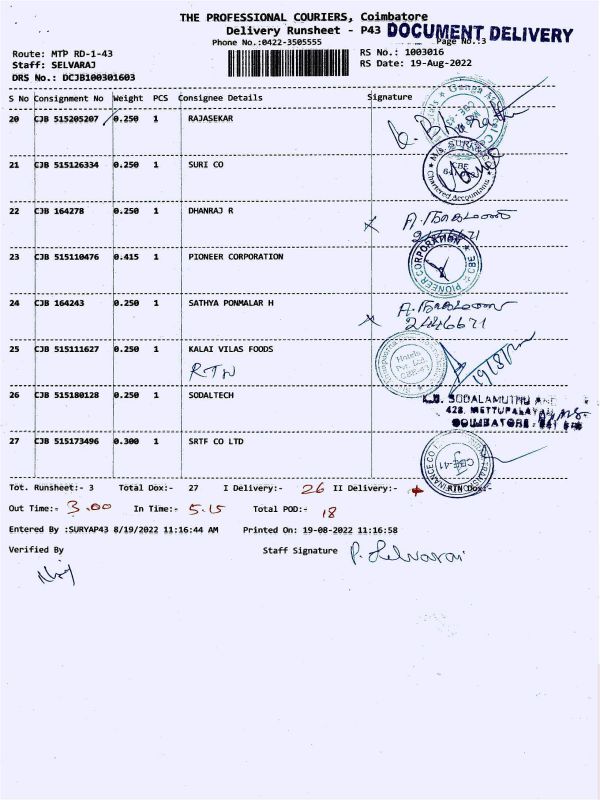 THE PROFESSIONAL COURIERS, Coimbatore
Delivery Runsheet - P43 DOCUMENT DELIVERY
Phone No.:0422-3505555 Page No.:3
Route: MTP RD-1-43 RS No.: 1003016
Staff: SELVARAJ RS Date: 19-Aug-2022
DRS No.: DCJB100301603
S No Consignment No Weight PCS Consignee Details Signature
20 CJB 515205207 0.250 1 RAJASEKAR
21 CJB 515126334 0.250 1 SURI CO
CBE
Chartered Accountants
22 CJB 164278 0.250 1 DHANRAJ R
23 CJB 515110476 0.415 1 PIONEER CORPORATION
PIONEER CORPORATION CBE
24 CJB 164243 0.250 1 SATHYA PONMALAR H
2446671
25 CJB 515111627 0.250 1 KALAI VILAS FOODS
RTN
Hotels
Pvt. Ltd.
19/8/22
26 CJB 515180128 0.250 1 SODALTECH
SODALAMUTHU AND
428, METTUPALAYAM
COIMBATORE
27 CJB 515173496 0.300 1 SRTF CO LTD
CBE-41
Tot. Runsheet:- 3 Total Dox:- 27 I Delivery:- 26 II Delivery:- RTN Dox:-
Out Time:- 3.00 In Time:- 5.15 Total POD:- 18
Entered By :SURYAP43 8/19/2022 11:16:44 AM Printed On: 19-08-2022 11:16:58
Verified By Staff Signature P. Selvaraj